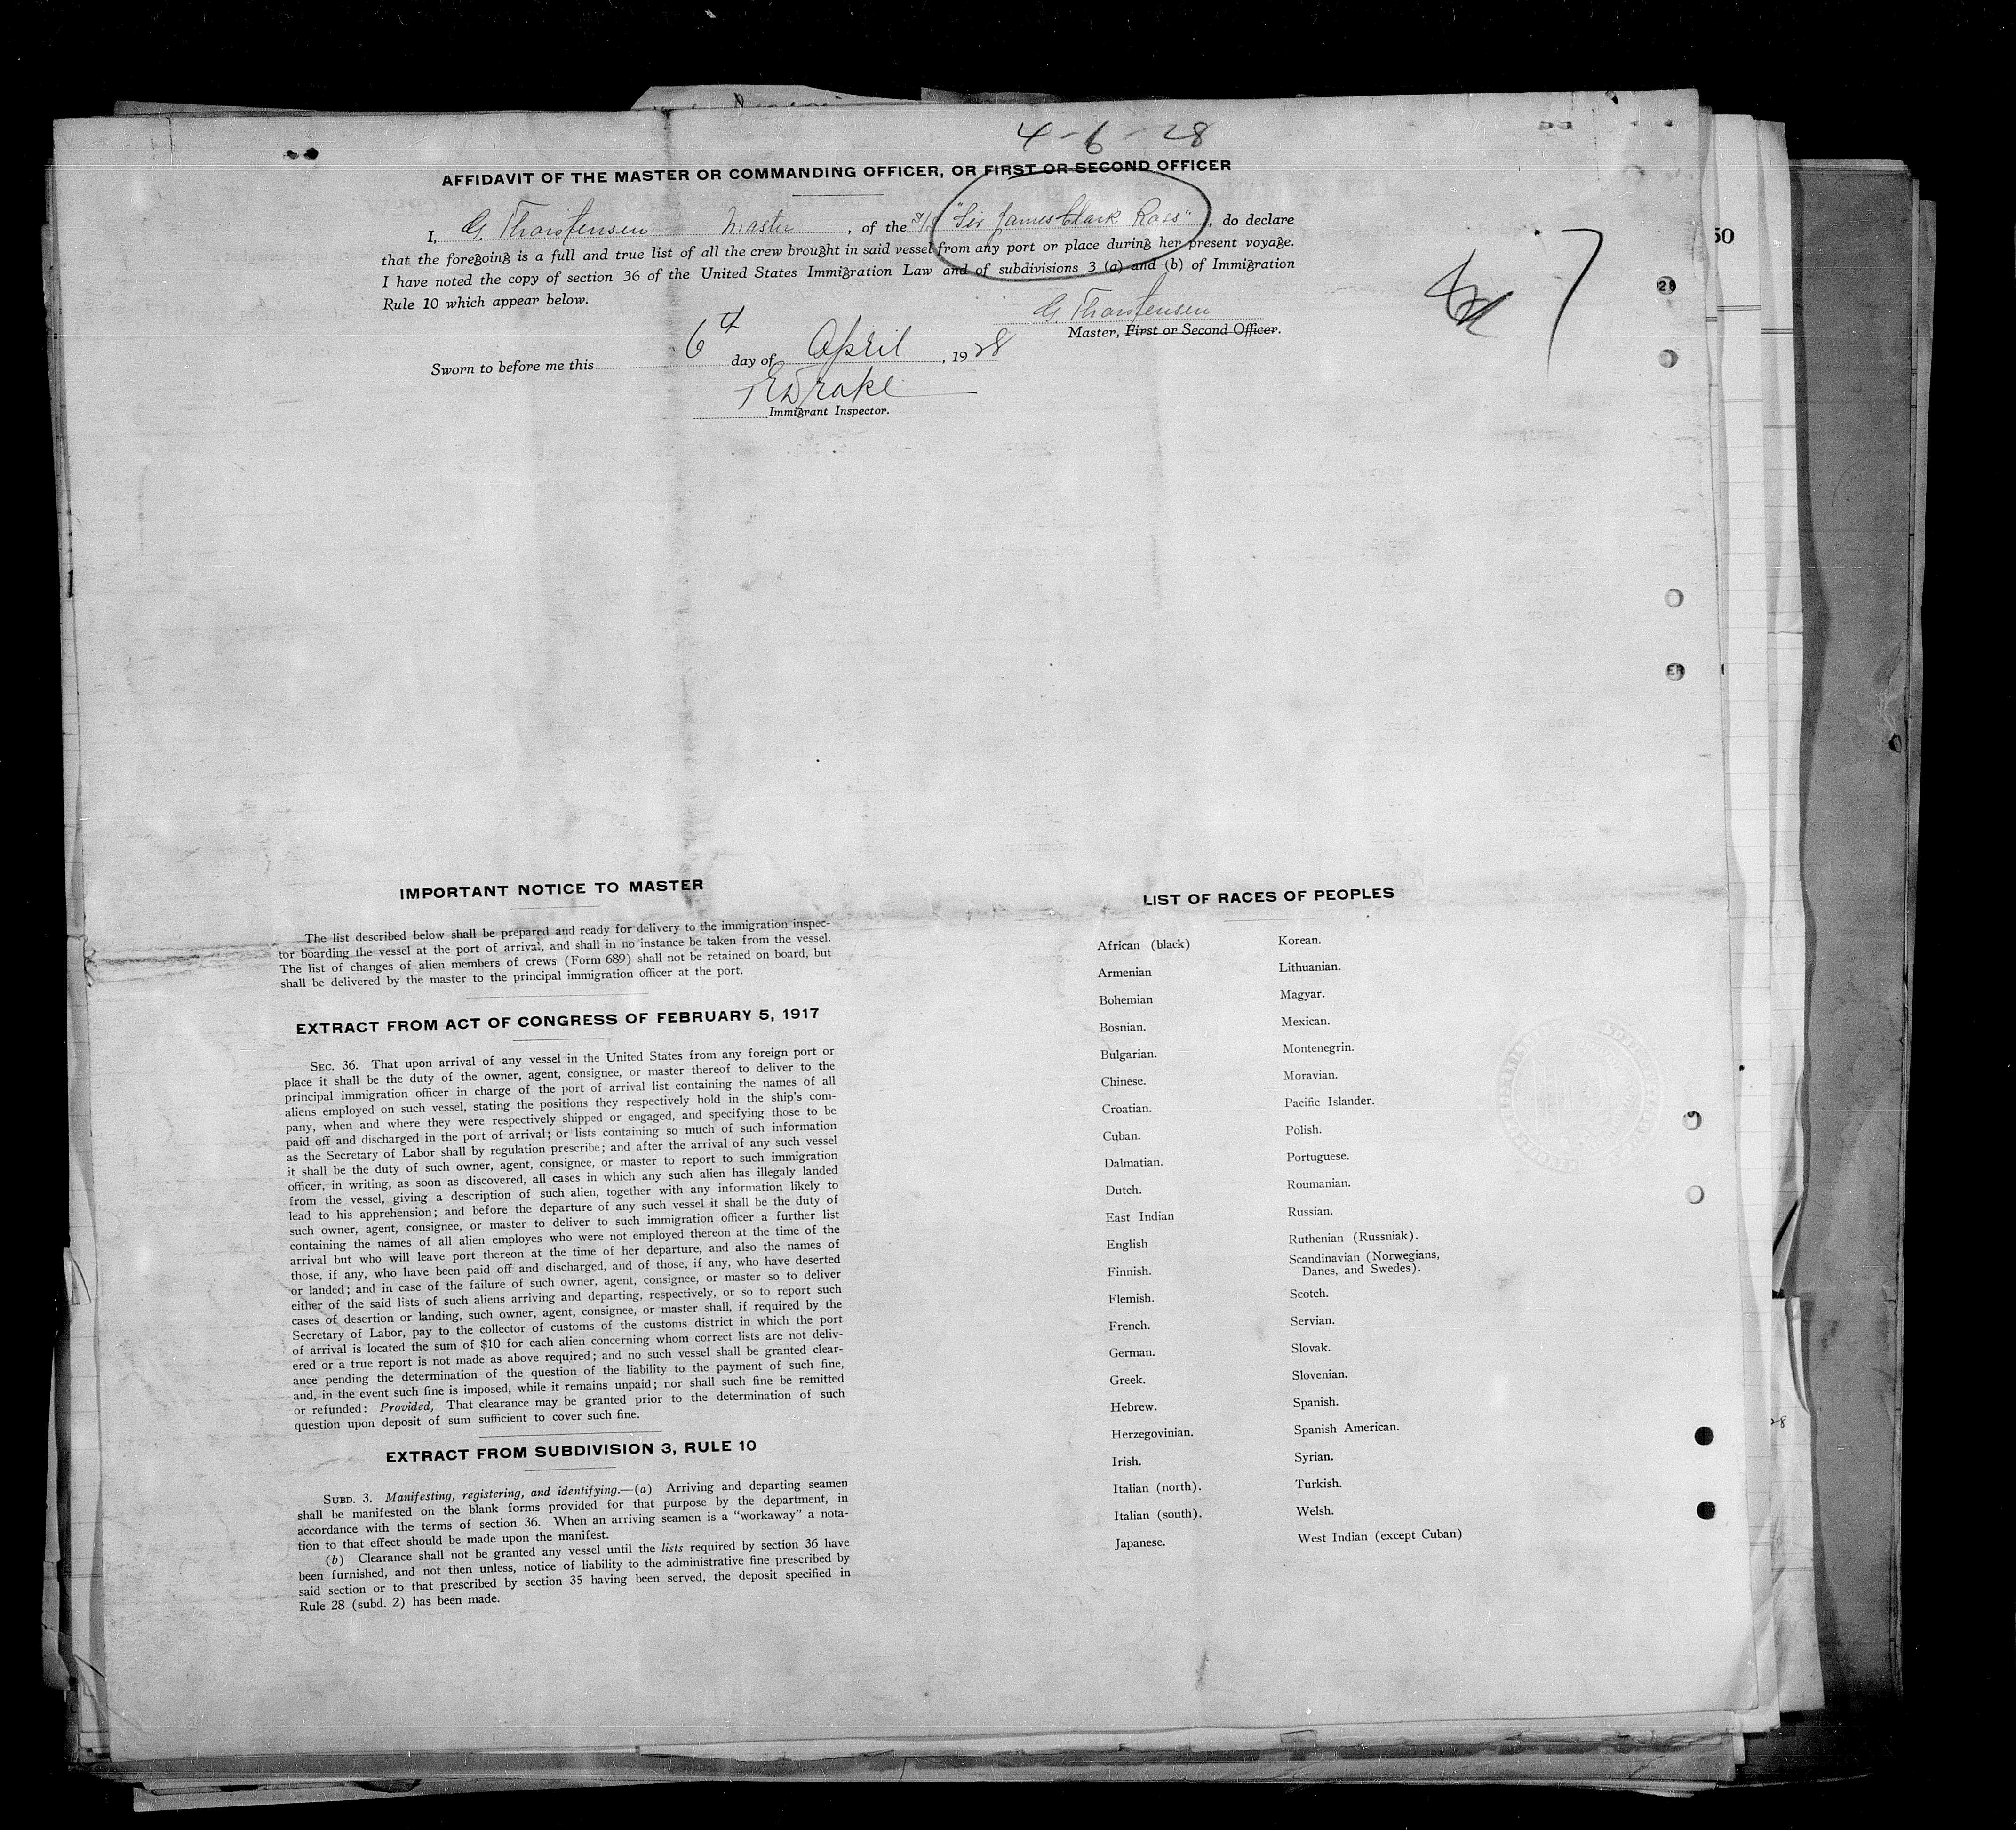 4-6-28
AFFIDAVIT OF THE MASTER OR COMMANDING OFFICER, OR FIRST OR SECOND OFFICER
I, G. Thorstensen Master, of the S/S "Sir James Clark Ross", do declare
that the foregoing is a full and true list of all the crew brought in said vessel from any port or place during her present voyage.
I have noted the copy of section 36 of the United States Immigration Law and of subdivisions 3 (a) and (b) of Immigration
Rule 10 which appear below.
G. Thorstensen
Master, First or Second Officer.
Sworn to before me this 6th day of April, 1928
Drake
Immigrant Inspector.
7
50
28
ER
IMPORTANT NOTICE TO MASTER
The list described below shall be prepared and ready for delivery to the immigration inspec-
tor boarding the vessel at the port of arrival, and shall in no instance be taken from the vessel.
The list of changes of alien members of crews (Form 689) shall not be retained on board, but
shall be delivered by the master to the principal immigration officer at the port.
EXTRACT FROM ACT OF CONGRESS OF FEBRUARY 5, 1917
SEC. 36. That upon arrival of any vessel in the United States from any foreign port or
place it shall be the duty of the owner, agent, consignee, or master thereof to deliver to the
principal immigration officer in charge of the port of arrival list containing the names of all
aliens employed on such vessel, stating the positions they respectively hold in the ship's com-
pany, when and where they were respectively shipped or engaged, and specifying those to be
paid off and discharged in the port of arrival; or lists containing so much of such information
as the Secretary of Labor shall by regulation prescribe; and after the arrival of any such vessel
it shall be the duty of such owner, agent, consignee, or master to report to such immigration
officer, in writing, as soon as discovered, all cases in which any such alien has illegaly landed
from the vessel, giving a description of such alien, together with any information likely to
lead to his apprehension; and before the departure of any such vessel it shall be the duty of
such owner, agent, consignee, or master to deliver to such immigration officer a further list
containing the names of all alien employes who were not employed thereon at the time of the
arrival but who will leave port thereon at the time of her departure, and also the names of
those, if any, who have been paid off and discharged, and of those, if any, who have deserted
or landed; and in case of the failure of such owner, agent, consignee, or master so to deliver
either of the said lists of such aliens arriving and departing, respectively, or so to report such
cases of desertion or landing, such owner, agent, consignee, or master shall, if required by the
Secretary of Labor, pay to the collector of customs of the customs district in which the port
of arrival is located the sum of $10 for each alien concerning whom correct lists are not deliv-
ered or a true report is not made as above required; and no such vessel shall be granted clear-
ance pending the determination of the question of the liability to the payment of such fine,
and, in the event such fine is imposed, while it remains unpaid; nor shall such fine be remitted
or refunded: Provided, That clearance may be granted prior to the determination of such
question upon deposit of sum sufficient to cover such fine.
EXTRACT FROM SUBDIVISION 3, RULE 10
SUBD. 3. Manifesting, registering, and identifying.—(a) Arriving and departing seamen
shall be manifested on the blank forms provided for that purpose by the department, in
accordance with the terms of section 36. When an arriving seamen is a "workaway" a nota-
tion to that effect should be made upon the manifest.
(b) Clearance shall not be granted any vessel until the lists required by section 36 have
been furnished, and not then unless, notice of liability to the administrative fine prescribed by
said section or to that prescribed by section 35 having been served, the deposit specified in
Rule 28 (subd. 2) has been made.
LIST OF RACES OF PEOPLES
African (black)
Armenian
Bohemian
Bosnian.
Bulgarian.
Chinese.
Croatian.
Cuban.
Dalmatian.
Dutch.
East Indian
English
Finnish.
Flemish.
French.
German.
Greek.
Hebrew.
Herzegovinian.
Irish.
Italian (north).
Italian (south).
Japanese.
Korean.
Lithuanian.
Magyar.
Mexican.
Montenegrin.
Moravian.
Pacific Islander.
Polish.
Portuguese.
Roumanian.
Russian.
Ruthenian (Russniak).
Scandinavian (Norwegians,
Danes, and Swedes).
Scotch.
Servian.
Slovak.
Slovenian.
Spanish.
Spanish American.
Syrian.
Turkish.
Welsh.
West Indian (except Cuban)